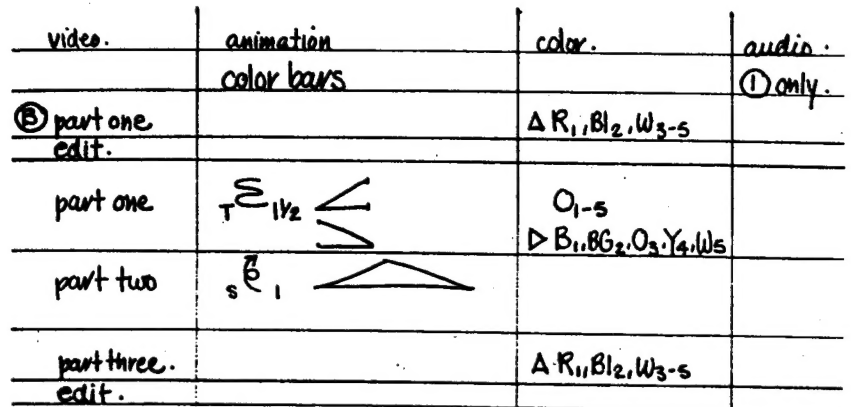 video. animation color. audio.
color bars ① only.
Ⓑ part one Δ R₁, Bl₂, W₃₋₅
edit.
part one T 1½ O₁₋₅
▷ B₁, BG₂, O₃, Y₄, W₅
part two s 1
part three. Δ R₁, Bl₂, W₃₋₅
edit.